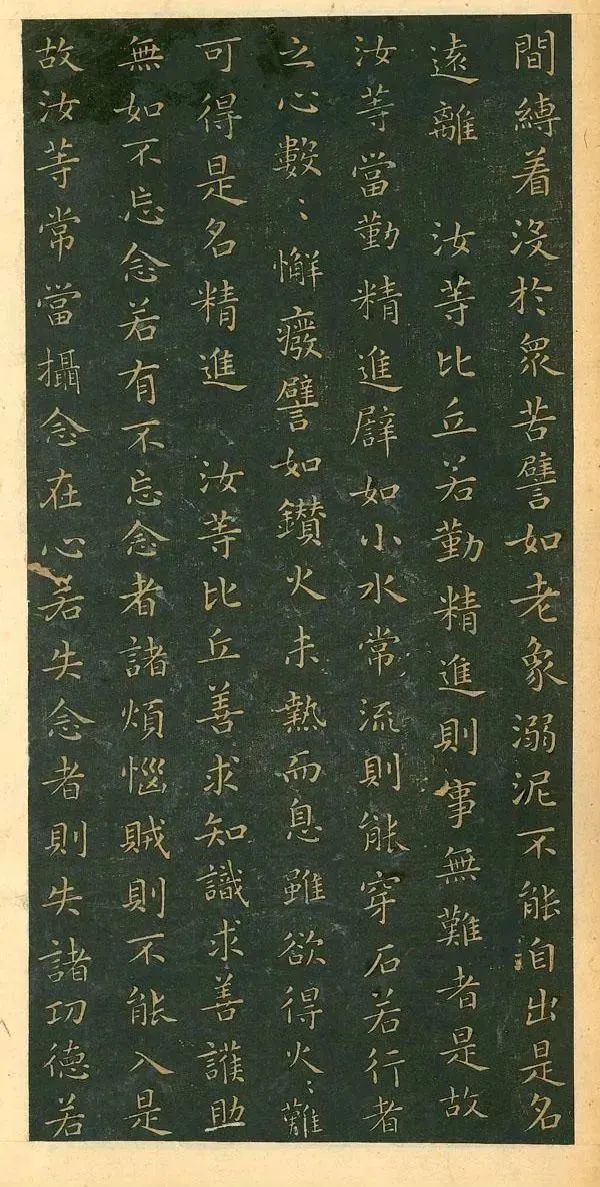 間縛着沒於衆苦譬如老象溺泥不能自出是名
遠離 汝等比丘若勤精進則事無難者是故
汝等當勤精進辟如小水常流則能穿石若行者
之心數〻懈癈譬如鑚火未熱而息雖欲得火〻難
可得是名精進 汝等比丘善求知識求善護助
無如不忘念若有不忘念者諸煩惱賊則不能入是
故汝等常當攝念在心若失念者則失諸功德若